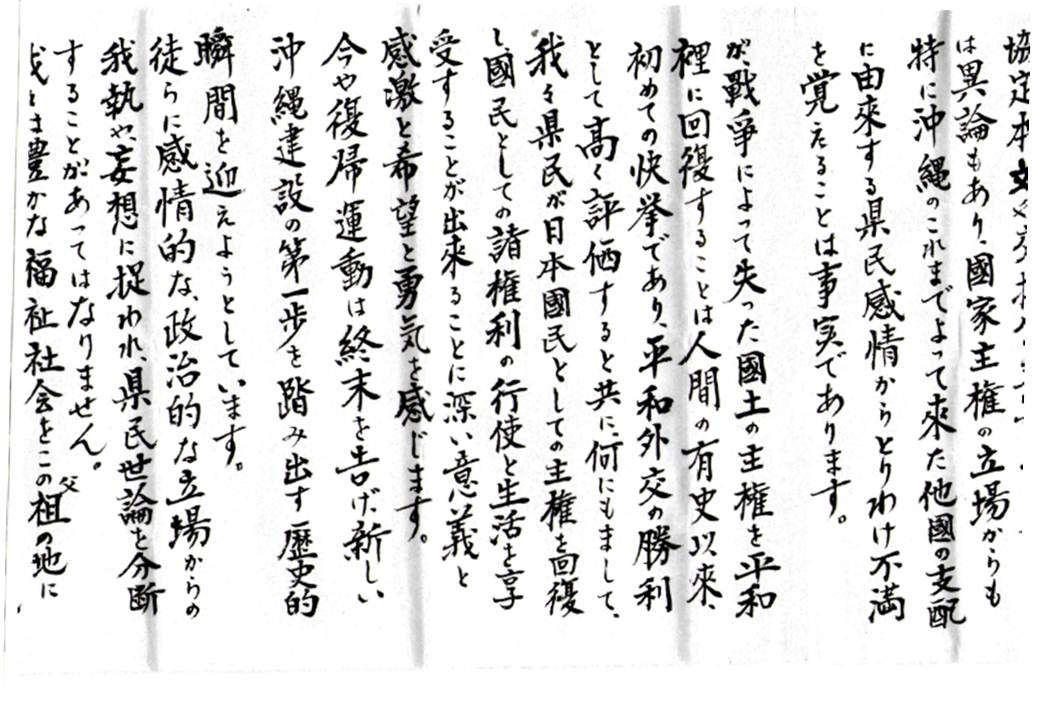 協定本文や交
は異論もあり、國家主権の立場からも
特に沖縄のこれまでよって来た他國の支配
に由來する県民感情からとりわけ不満
を覚えることは事実であります。
が、戰爭によって失った國土の主権を平和
裡に回復することは人間の有史以來、
初めての快挙であり、平和外交の勝利
として高く評価すると共に、何にもまして、
我々県民が日本國民としての主権を回復
し國民としての諸権利の行使と生活を享
受することが出来ることに深い意義と
感激と希望と勇気を感じます。
今や復帰運動は終末を告げ、新しい
沖縄建設の第一歩を踏み出す歴史的
瞬間を迎えようとしています。
徒らに感情的な、政治的な立場からの
我執や妄想に捉われ、県民世論を分断
することがあってはなりません。
我々は豊かな福祉社会をこの父祖の地に